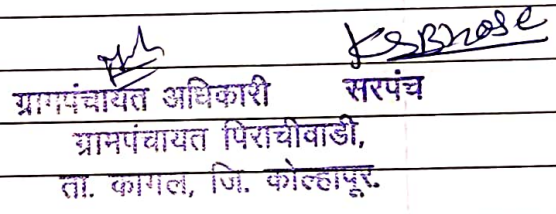 KSBhose
ग्रामपंचायत अधिकारी सरपंच
ग्रामपंचायत पिराचीवाडी,
ता. कागल, जि. कोल्हापूर.